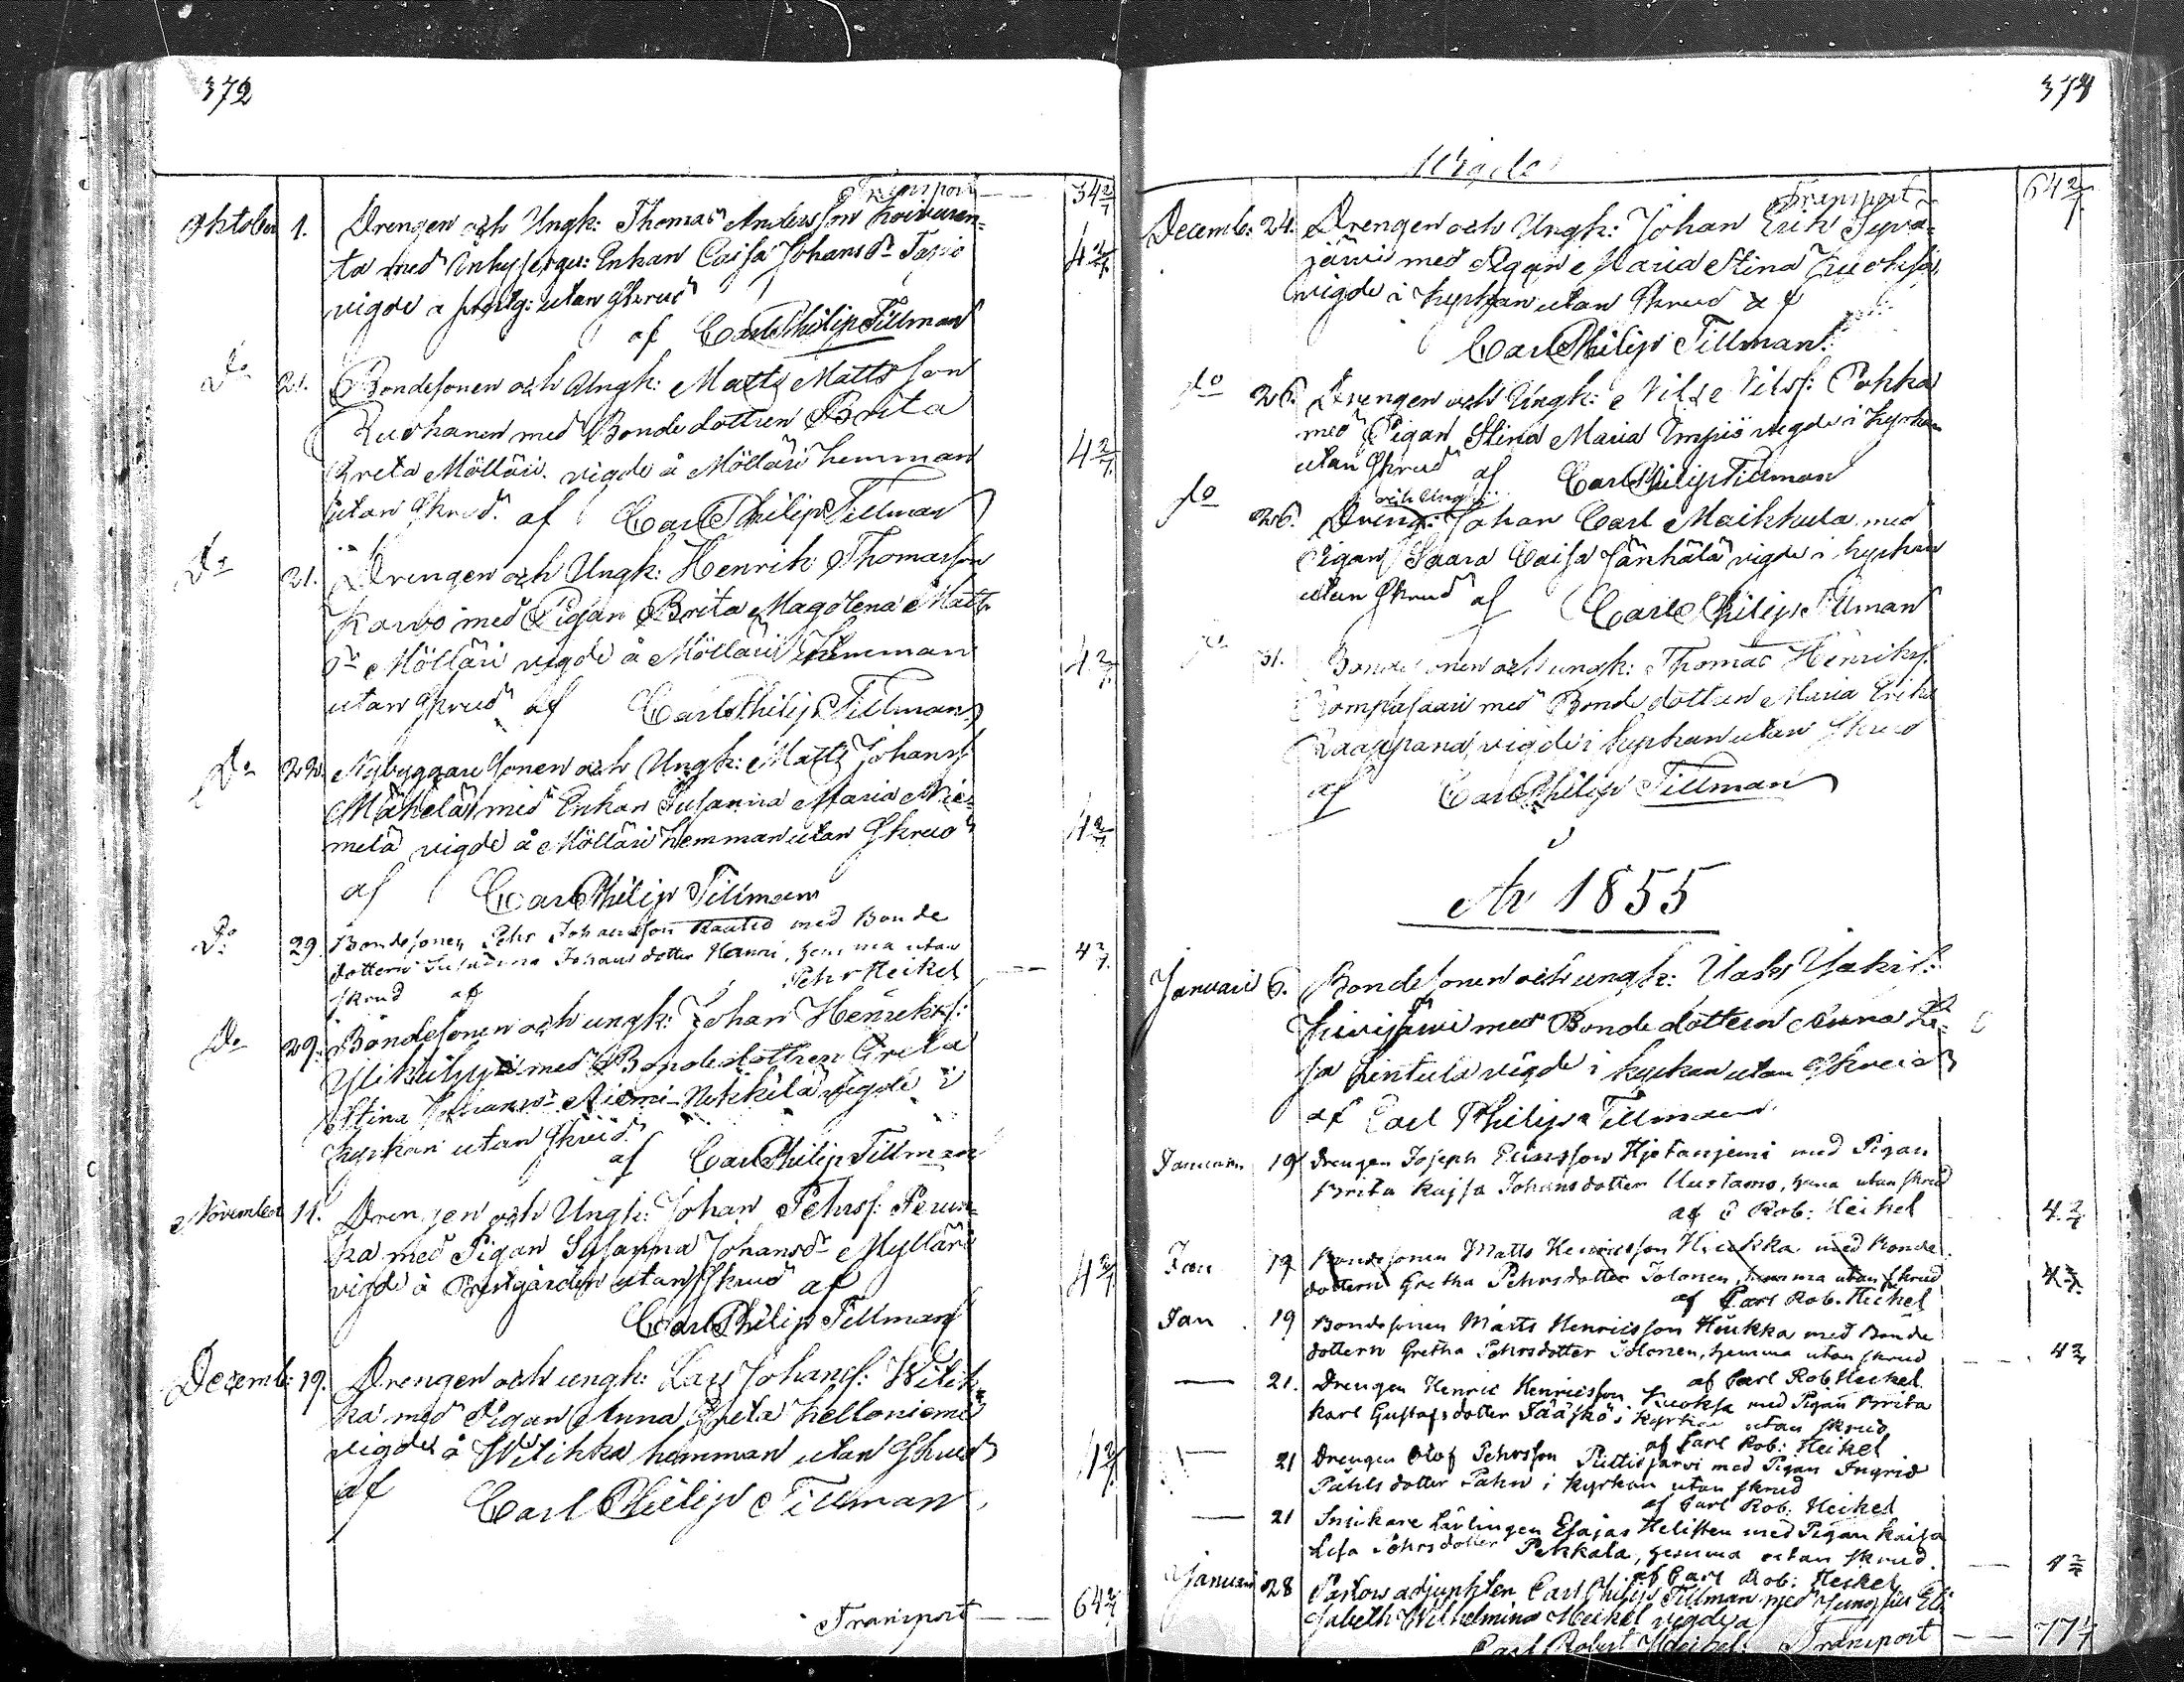 372
Transport 34 2/7
Oktober 1. Drengen och Ungk: Thomas Andersson Koivuran=
ta med Inhyseqv: Enkan Caisa Johans dr Tapio 4 2/7
vigde å prestg: utan skrud
af Carl Philip Tillman
Do 21. Bondesonen och Ungk: Matts Mattsson
Ruohanen med Bondedottren Brita
Greta Mölläri vigde å Mölläri hemman 4 2/7
utan skrud. af Carl Philip Tillman
Do 21. Drengen och Ungk: Henrik Thomasson
Karvo med Pigan Brita Magdlena Matts
dr Mölläri vigde å Mölläri hemman 4 2/7
utan skrud af Carl Philip Tillman
Do 22. Nybyggare sonen och Ungk: Matts Johanss:
Mähelä med Enkan Susanna Maria Nie=
melä vigde å Mölläri hemman utan skrud 4 2/7
af Carl Philip Tillman
Do 29. Bondesonen Pehr Johansson Rautio med Bonde 4 2/7
dottern Susanna Johans dotter Hanni, hemma utan
skrud af Pehr Heikel
Do 29. Bondesonen och ungk: Johan Henrikss:
med Bondedottren Greta
Stina Johansdr Niemi-Nikkilä vigde i
kyrkan utan skrud
af Carl Philip Tillman
November 11. Drengen och Ungk: Johan Pehrss: Perun=
ka med Pigan Susanna Johansdr Mylläri 4 2/7
vigde å Prestgården utan skrud af
Carl Philip Tillman
Decemb: 19. Drengen och ungk: Lars Johanss: Wilik=
ka med Pigan Anna Greta Kelloniemi
vigde å Wilikka hemman utan skrud 4 2/7
af Carl Philip Tillman
Transport 64 2/7
374
Vigde
Transport 64 2/7
Decemb: 24. Drengen och Ungk: Johan Erik Syvä=
järvi med Pigan Maria Stina Kuoksa,
vigde i kyrkan utan skrud af
Carl Philip Tillman.
do 26. Drengen och Ungk: Nils Nilss: Pokka
med Pigan Stina Maria Impiö vigde i kyrkan
utan skrud af Carl Philip Tillman
do 26. Dreng: och Ung: Johan Carl Maikkula med
Pigan Saara Caisa Jänkälä vigde i kyrkan
utan skrud af Carl Philip Tillman
do 31. Bondesonen och ungk: Thomas Henrikss.
Kompasaari med Bondedottren Maria Erika
Raappana, vigde i kyrkan utan skrud
af Carl Philip Tillman
År 1855
Januari 6. Bondesonen och ungk:
Kivijärvi med Bondedottern Anna Li=
sa Hintula vigde i kyrkan utan skrud
af Carl Philip Tillman
Januari 19 Drengen Joseph Ericsson Hjetaniemi med Pigan
Brita Kajsa Johansdotter Uustamo, hema utan skrud
af C Rob: Heikel 4 2/7
Jan 19 Bondesonen Matts Henricsson Heikka med Bonde
dottern Gretha Pehrsdotter Tolonen, hemma utan skrud 4 2/7
af Carl Rob. Heikel
Jan 19 Bondesonen Matts Henricsson Heikka med Bonde
dottern Gretha Pehrsdotter Tolonen, hemma utan skrud 4 2/7
af Carl Rob. Heikel
— 21. Drengen Henric Henricsson Kuoksa med Pigan Brita
Karl Gustafsdotter Jääskö i kyrkan utan skrud
af Carl Rob: Heikel
— 21 Drengen Olof Pehrsson Pittisjärvi med Pigan Ingrid
Påhls dotter Pahn i kyrkan utan skrud
af Carl Rob: Heikel
— 21 Snickare Lärlingen Esajas Helisten med Pigan Kaisa
Lisa Pehrsdotter Pekkala, hemma utan skrud 4 2/7
af Carl Rob: Heikel
Januari 28 Pastors adjunkten Carl Philip Tillman med Jungfru Eli
sabeth Wilhelmina Heikel vigde af
Carl Robert Heikel. Transport 77 1/7